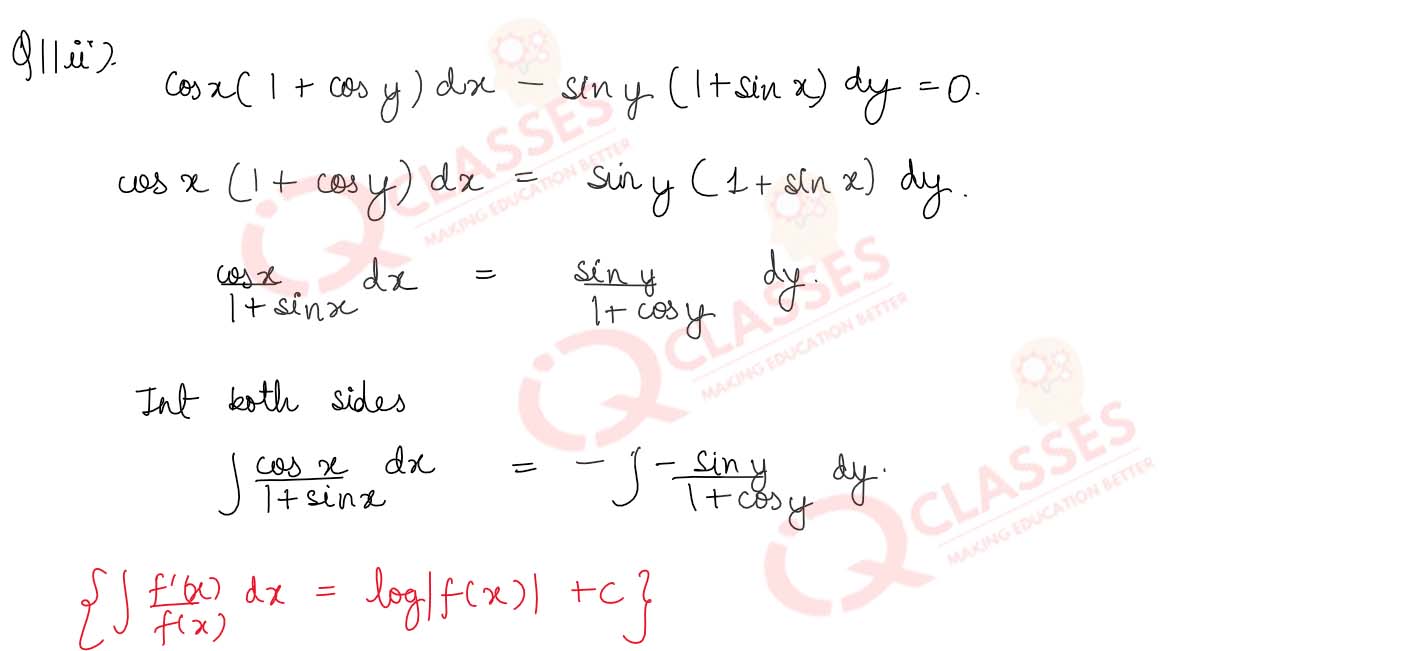 Q11 ii).
cos x (1 + cos y) dx - sin y (1 + sin x) dy = 0.
cos x (1 + cos y) dx = sin y (1 + sin x) dy.
cos x / 1 + sin x dx = sin y / 1 + cos y dy.
Int both sides
∫ cos x / 1 + sin x dx = - ∫ - sin y / 1 + cos y dy.
{ ∫ f'(x) / f(x) dx = log|f(x)| + c }
CLASSES
MAKING EDUCATION BETTER
CLASSES
MAKING EDUCATION BETTER
CLASSES
MAKING EDUCATION BETTER